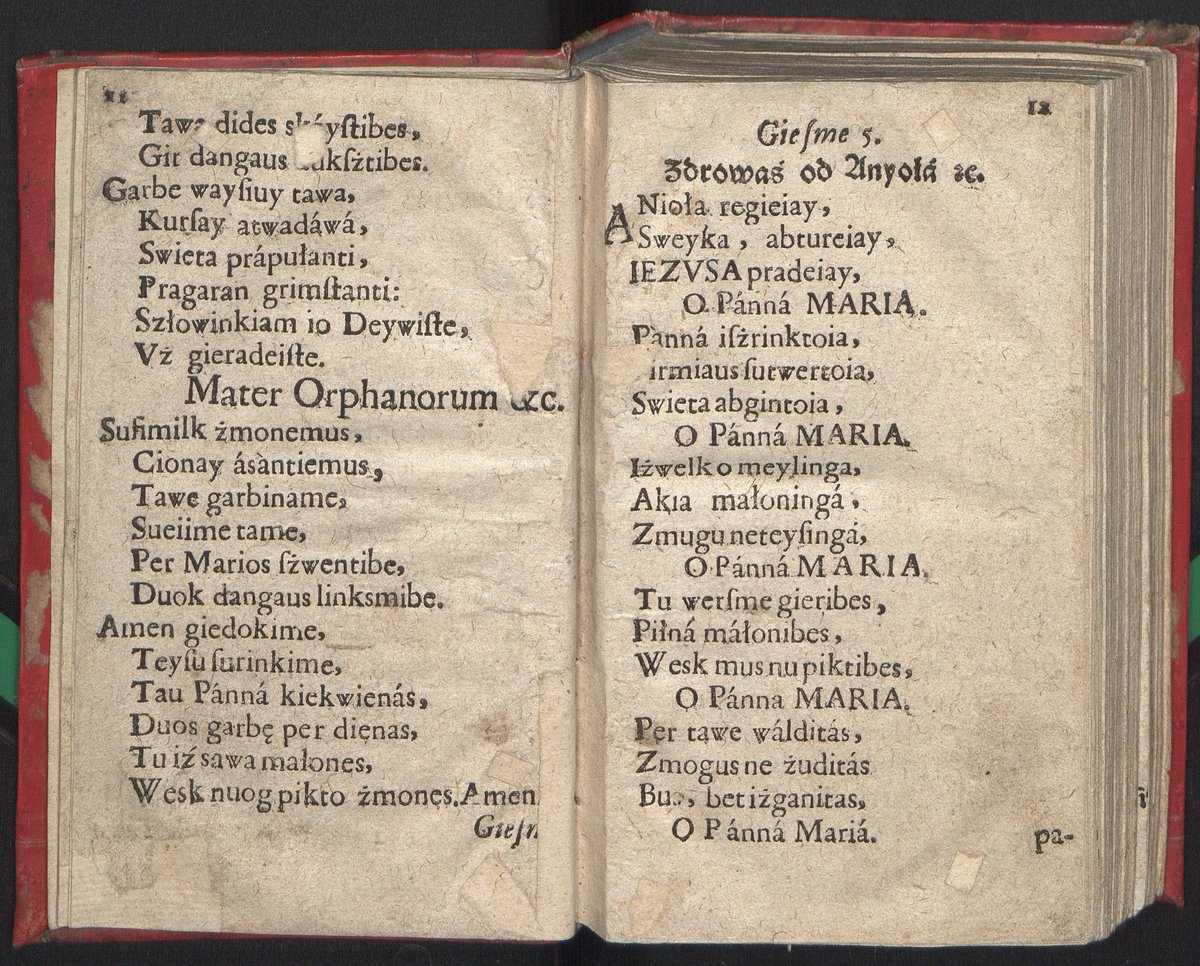 11
dides
Git dangaus
Garbe wayſiuy tawa,
Kurſay atwadáwá,
Swieta prápułanti,
Pragaran grimſtanti:
Szłowinkiam io Deywiſte,
Vż gieradeiſte.
Mater Orphanorum &c.
Suſimilk żmonemus,
Cionay ásàntiemus,
Tawe garbiname,
Sueiime tame,
Per Marios ſżwentibe,
Duok dangaus linksmibe.
Amen giedokime,
Teyſu ſurinkime,
Tau Pánná kiekwienás,
Duos garbę per dienas,
Tu iź sawa małones,
Wesk nuog pikto żmones. Amen
12
Gieſme 5.
Zdrowaś od Anyołá ꝛc.
ANioła regieiay,
Sweyka, abtureiay,
IEZVSA pradeiay,
O Pánná MARIA.
Pànná iſżrinktoia,
ſutwertoia,
Swieta abgintoia,
O Pánná MARIA.
Iżwelk o meylinga,
Akia małoningá,
Zmugu neteyſingá,
O Pánná MARIA.
Tu werſme gieribes,
Piłná máłonibes,
Wesk mus nu piktibes,
O Pánna MARIA.
Per tawe wálditás,
Zmogus ne żuditás
bet iżganitas,
O Pánná Mariá.
pa-